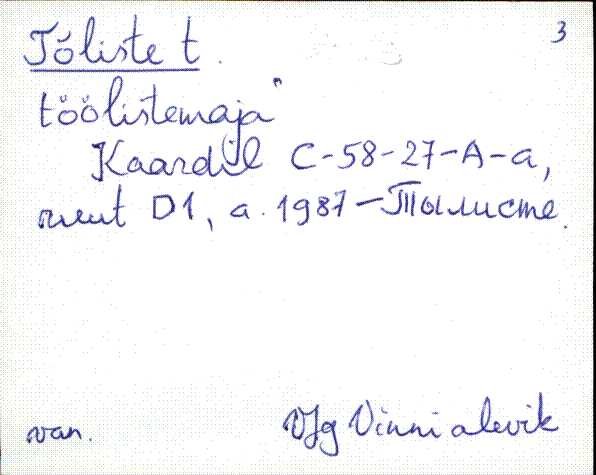 Tõliste t.
3
töölistemaja"
Kaardil C-58-27-A-a,
ruut D1, a. 1987 – Тылисте.
van.
VJg Vinni alevik